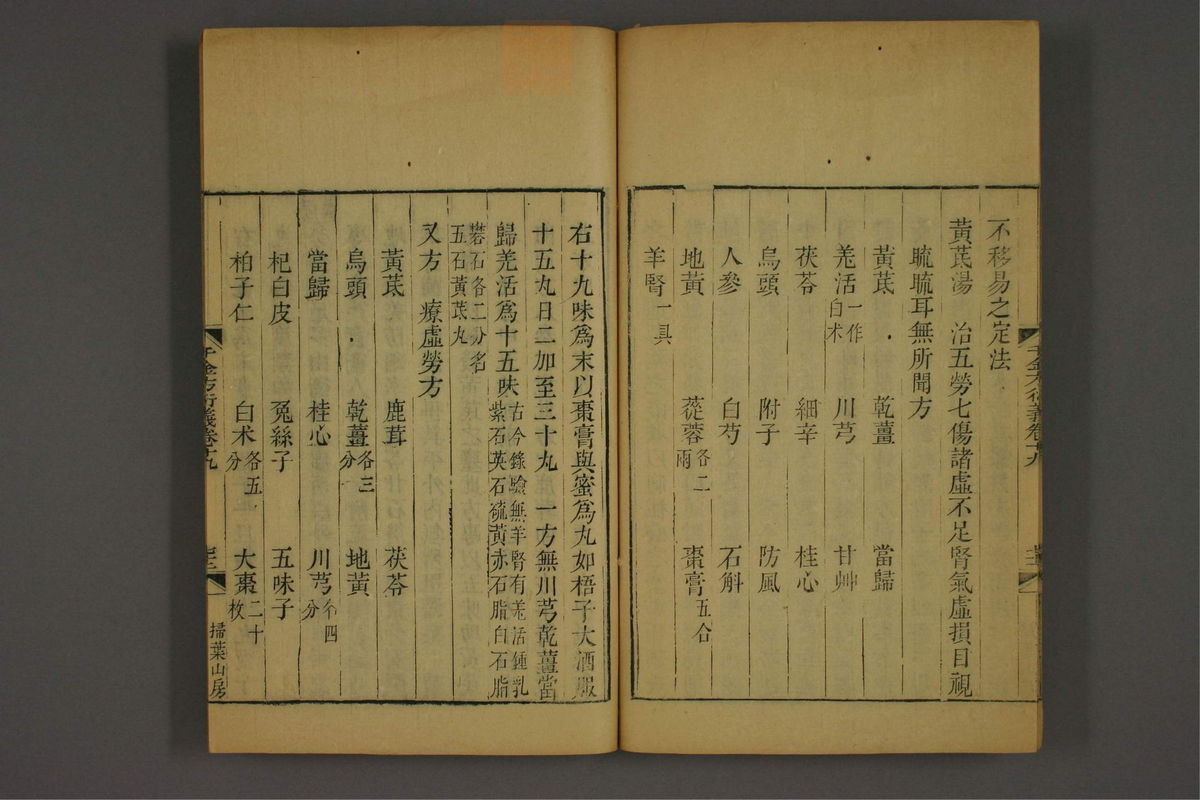 不移易之定法
黃芪湯　治五勞七傷諸虛不足腎氣虛損目視
䀮䀮耳無所聞方
黃芪　乾薑　當歸
羌活一作白术　川芎　甘艸
茯苓　細辛　桂心
烏頭　附子　防風
人參　白芍　石斛
地黃　蓯蓉各二兩　棗膏五合
羊腎一具
右十九味爲末以棗膏與蜜爲丸如梧子大酒服
十五丸日二加至三十丸　一方無川芎乾薑當
歸羌活爲十五味古今錄驗無羊腎有羌活鍾乳紫石英石硫黃赤石脂白石脂
礜石各二分名五石黃芪丸
又方　療虛勞方
黃芪　鹿茸　茯苓
烏頭　乾薑各三分　地黃
當歸　桂心　川芎各四分
杞白皮　菟絲子　五味子
柏子仁　白术各五分　大棗二十枚
千金方衍義卷十九
掃葉山房